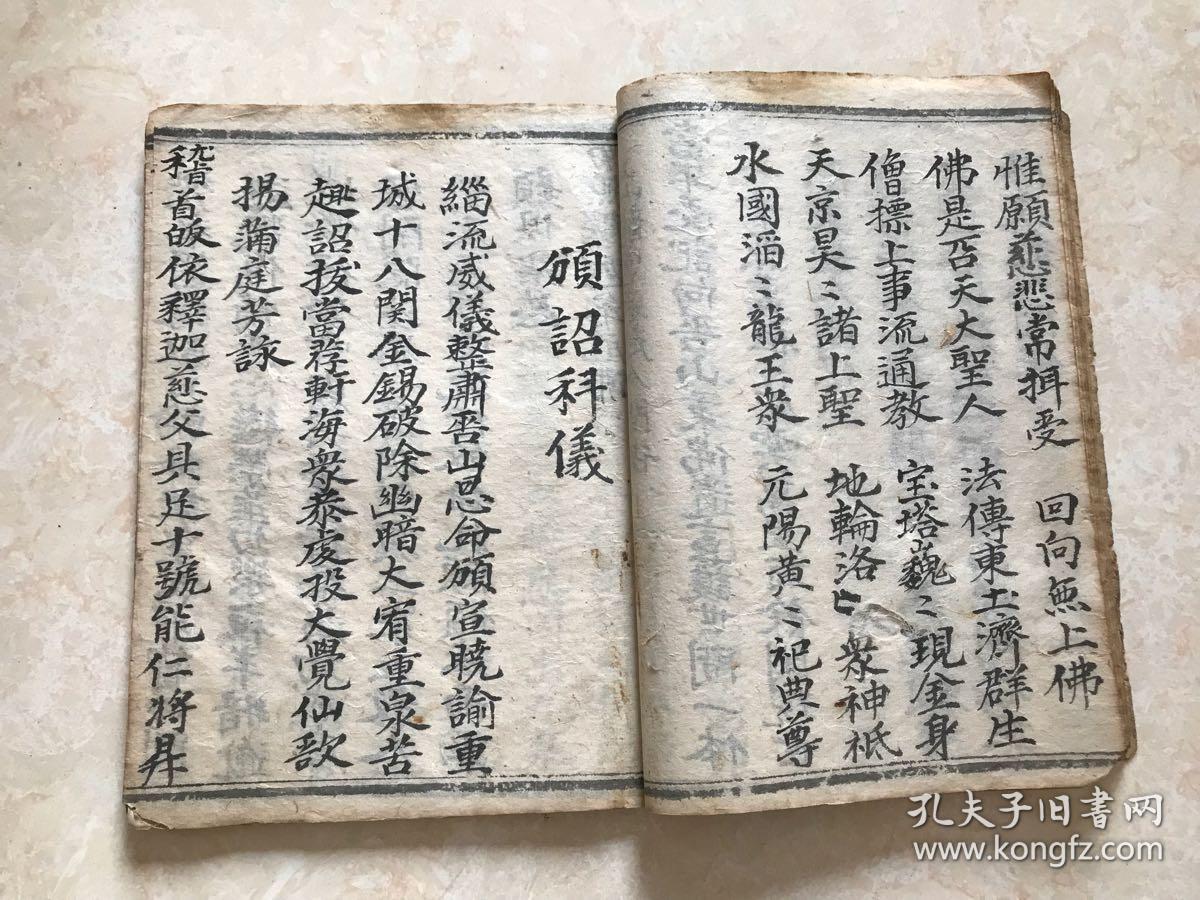 惟願慈悲常攝受 回向無上佛
佛是召天大聖人 法傳東土濟群生
僧標上事流通教 宝塔巍〻現金身
天京昊〻諸上聖 地輪洛〻衆神祇
水國滔〻龍王衆 元陽黄〻祀典尊
頒詔科儀
緇流威儀整肅啓山恩命頒宣曉諭重
城十八関金錫破除幽暗大宥重泉苦
趣詔拔當荐軒海衆恭虔投大覺仙歌
揚蒲庭芳詠
稽首皈依釋迦慈父具足十號能仁将昇
孔夫子旧书网
www.kongfz.com